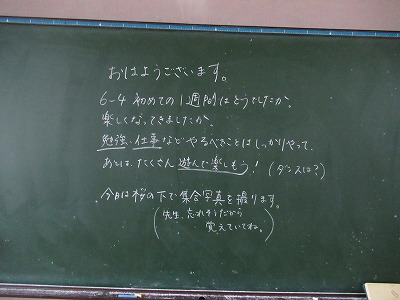 おはようございます。
6-4 初めての1週間はどうでしたか。
楽しくなってきましたか。
勉強、仕事などやるべきことはしっかりやって、
あとは、たくさん遊んで楽しもう！（ダンスは？）
今日は桜の下で集合写真を撮ります。
（先生、忘れそうだから
覚えていてね。）